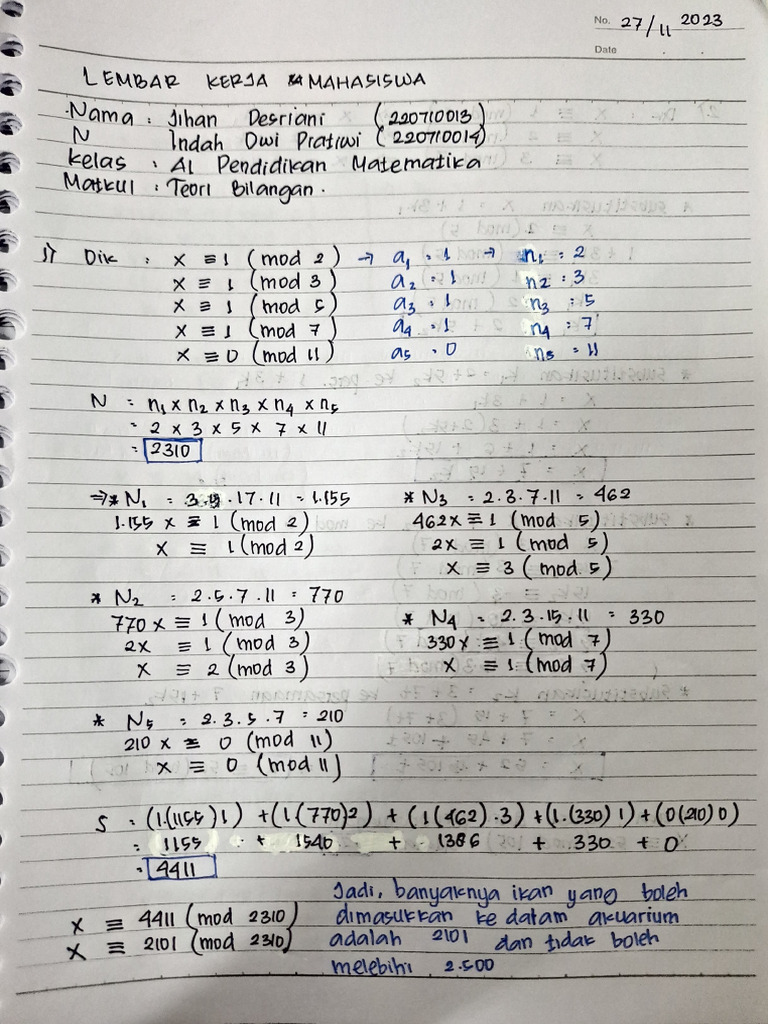 No. 27/11 2023
Date
LEMBAR KERJA MAHASISWA
Nama : Jihan Desriani (220710013)
N Indah Dwi Pratiwi (220710014)
Kelas : A1 Pendidikan Matematika
Matkul : Teori Bilangan.
1) Dik : x ≡ 1 (mod 2) → a₁ = 1 → n₁ = 2
x ≡ 1 (mod 3) a₂ = 1 n₂ = 3
x ≡ 1 (mod 5) a₃ = 1 n₃ = 5
x ≡ 1 (mod 7) a₄ = 1 n₄ = 7
x ≡ 0 (mod 11) a₅ = 0 n₅ = 11
N = n₁ x n₂ x n₃ x n₄ x n₅
= 2 x 3 x 5 x 7 x 11
= 2310
→ * N₁ = 3.5.17.11 = 1.155
1.155 x ≡ 1 (mod 2)
x ≡ 1 (mod 2)
* N₂ = 2.5.7.11 = 770
770 x ≡ 1 (mod 3)
2x ≡ 1 (mod 3)
x ≡ 2 (mod 3)
* N₃ = 2.3.7.11 = 462
462x ≡ 1 (mod 5)
2x ≡ 1 (mod 5)
x ≡ 3 (mod 5)
* N₄ = 2.3.15.11 = 330
330x ≡ 1 (mod 7)
x ≡ 1 (mod 7)
* N₅ = 2.3.5.7 = 210
210 x ≡ 0 (mod 11)
x ≡ 0 (mod 11)
S = (1.(1155)1) + (1.(770)2) + (1(462).3) + (1.(330)1) + (0(210)0)
= 1155 + 1540 + 1386 + 330 + 0
= 4411
x ≡ 4411 (mod 2310)
x ≡ 2101 (mod 2310)
Jadi, banyaknya ikan yang boleh
dimasukkan ke dalam akuarium
adalah 2101 dan tidak boleh
melebihi 2.500